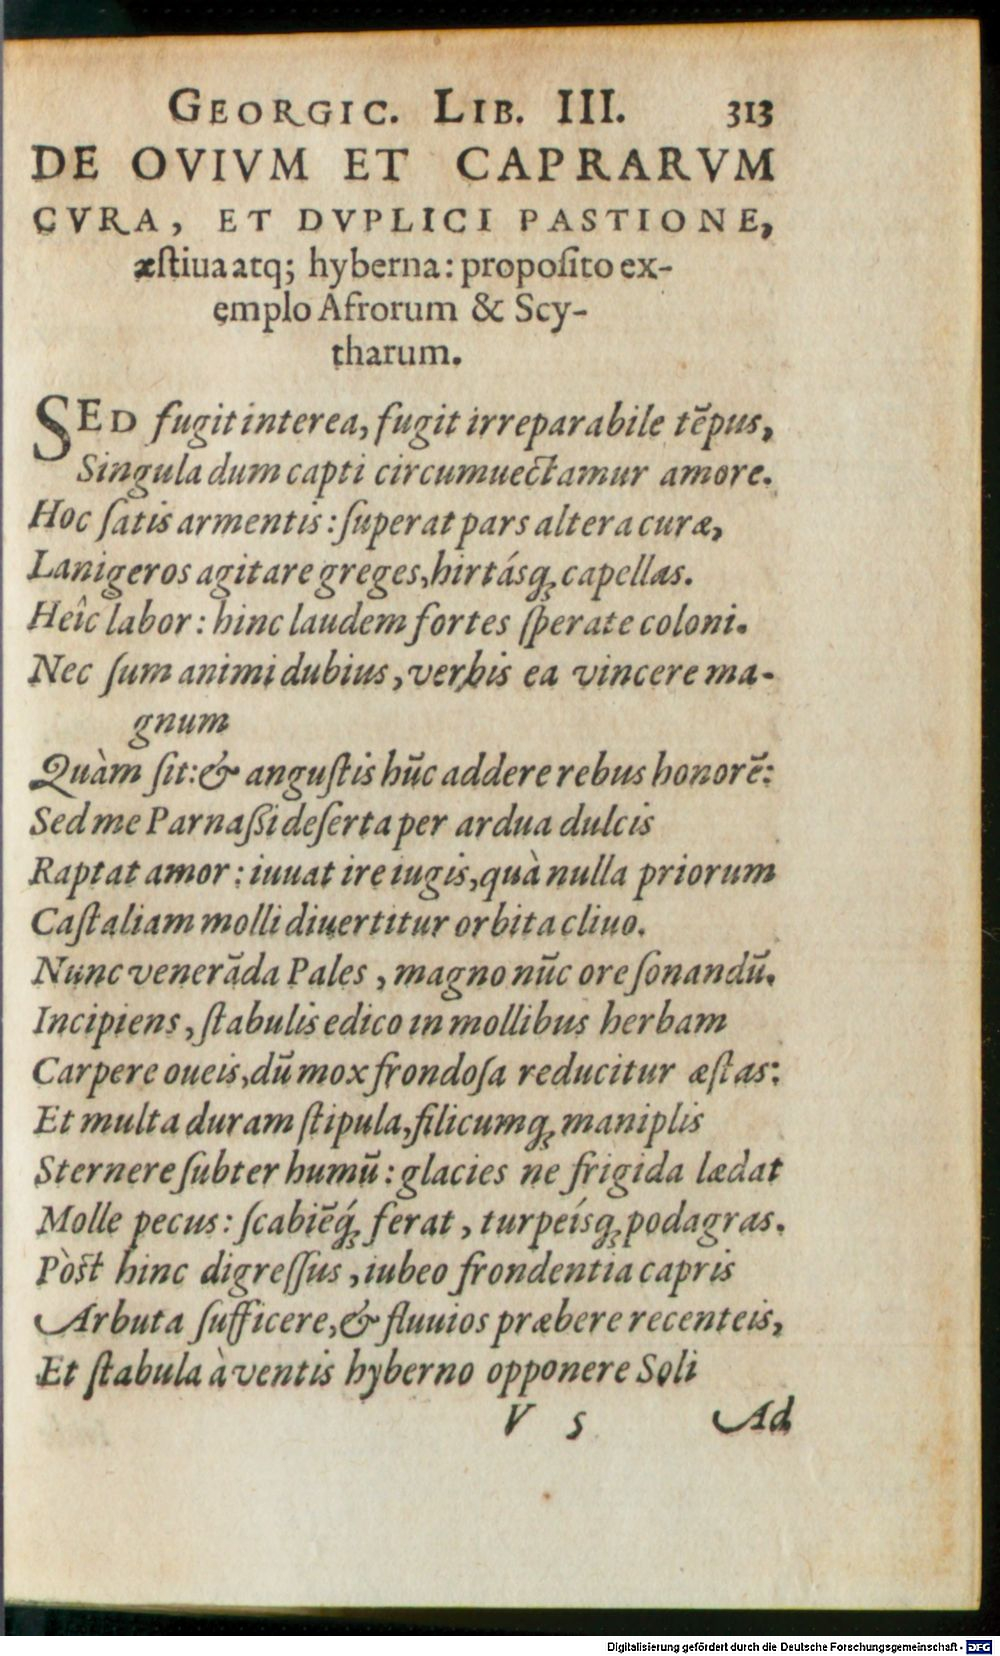 GEORGIC. LIB. III. 313
DE OVIVM ET CAPRARVM
CVRA, ET DVPLICI PASTIONE,
æſtiua atq; hyberna: propoſito ex-
emplo Afrorum & Scy-
tharum.
SED fugit interea, fugit irreparabile tẽpus,
Singula dum capti circumuectamur amore.
Hoc ſatis armentis: ſuperat pars altera curæ,
Lanigeros agitare greges, hirtásq; capellas.
Heîc labor: hinc laudem fortes ſperate coloni.
Nec ſum animi dubius, verbis ea vincere ma-
gnum
Quàm ſit: & anguſtis hũc addere rebus honorẽ:
Sed me Parnaſſi deſerta per ardua dulcis
Raptat amor: iuuat ire iugis, quà nulla priorum
Caſtaliam molli diuertitur orbita cliuo.
Nunc venerãda Pales, magno nũc ore ſonandũ.
Incipiens, ſtabulis edico in mollibus herbam
Carpere oueis, dũ mox frondoſa reducitur æſtas:
Et multa duram ſtipula, filicumq; maniplis
Sternere ſubter humũ: glacies ne frigida lædat
Molle pecus: ſcabiẽq́; ferat, turpeísq; podagras.
Pòſt hinc digreſſus, iubeo frondentia capris
Arbuta ſufficere, & fluuios præbere recenteis,
Et ſtabula à ventis hyberno opponere Soli
V 5 Ad
Digitalisierung gefördert durch die Deutsche Forschungsgemeinschaft - DFG